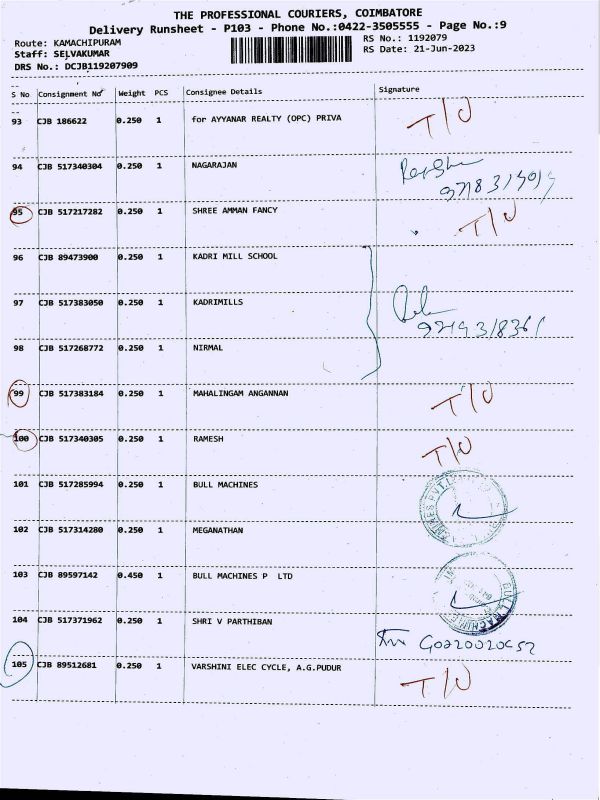 THE PROFESSIONAL COURIERS, COIMBATORE
Delivery Runsheet - P103 - Phone No.:0422-3505555 - Page No.:9
Route: KAMACHIPURAM
RS No.: 1192079
Staff: SELVAKUMAR
RS Date: 21-Jun-2023
DRS No.: DCJB119207909
S No Consignment No Weight PCS Consignee Details Signature
93 CJB 186622 0.250 1 for AYYANAR REALTY (OPC) PRIVA T/O
94 CJB 517340304 0.250 1 NAGARAJAN
95 CJB 517217282 0.250 1 SHREE AMMAN FANCY T/O
96 CJB 89473900 0.250 1 KADRI MILL SCHOOL
97 CJB 517383050 0.250 1 KADRIMILLS
98 CJB 517268772 0.250 1 NIRMAL
99 CJB 517383184 0.250 1 MAHALINGAM ANGANNAN T/O
100 CJB 517340305 0.250 1 RAMESH T/O
101 CJB 517285994 0.250 1 BULL MACHINES
102 CJB 517314280 0.250 1 MEGANATHAN
103 CJB 89597142 0.450 1 BULL MACHINES P LTD
104 CJB 517371962 0.250 1 SHRI V PARTHIBAN
105 CJB 89512681 0.250 1 VARSHINI ELEC CYCLE, A.G.PUDUR T/O